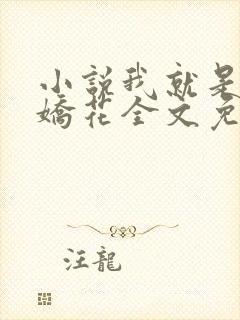 小説我就是
嬌花全文免
汪龍